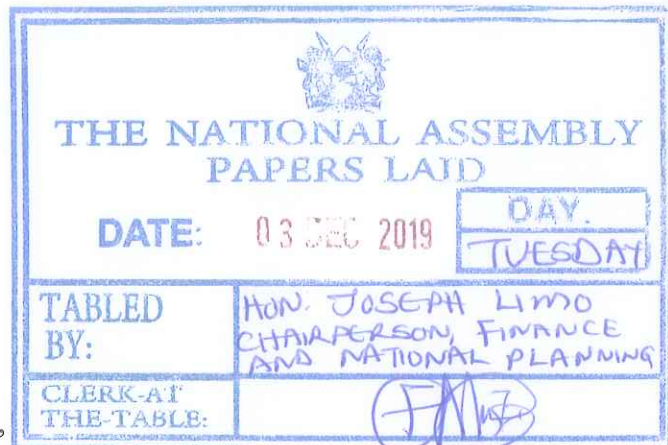 THE NATIONAL ASSEMBLY
PAPERS LAID
DATE: 03 DEC 2019
DAY.
TUESDAY
TABLED
BY:
HON. JOSEPH LIMO
CHAIRPERSON, FINANCE
AND NATIONAL PLANNING
CLERK-AT
THE-TABLE: